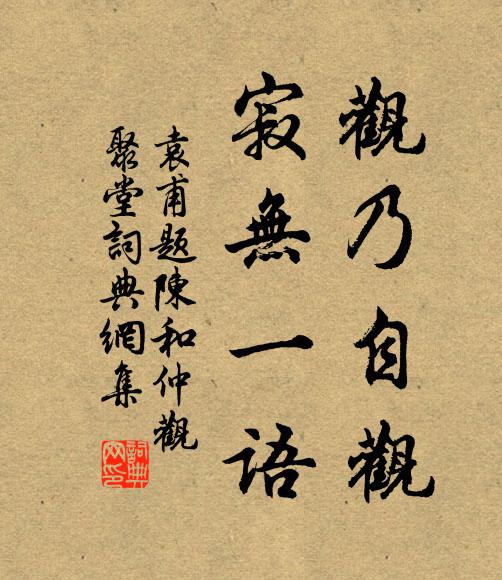 觀乃自觀
寂無一語
袁甫題陳和仲觀
聚堂詞典網集
詞典
网印